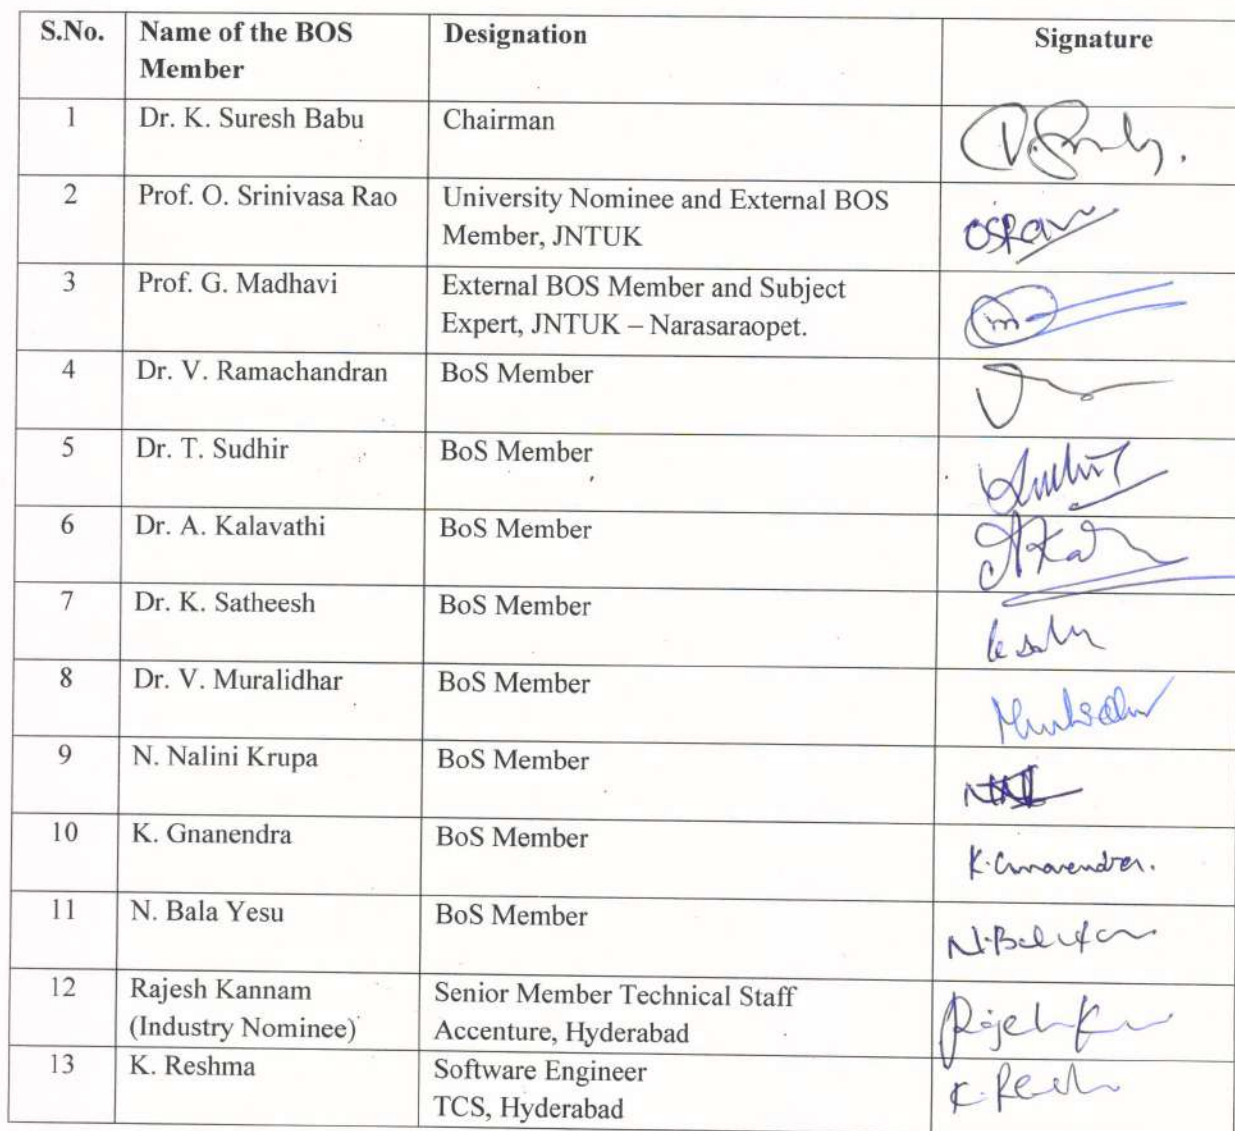 S.No. Name of the BOS Designation Signature
Member
1 Dr. K. Suresh Babu Chairman
2 Prof. O. Srinivasa Rao University Nominee and External BOS
Member, JNTUK
OSRao
3 Prof. G. Madhavi External BOS Member and Subject
Expert, JNTUK – Narasaraopet.
4 Dr. V. Ramachandran BoS Member
5 Dr. T. Sudhir BoS Member
6 Dr. A. Kalavathi BoS Member
7 Dr. K. Satheesh BoS Member
8 Dr. V. Muralidhar BoS Member
9 N. Nalini Krupa BoS Member
10 K. Gnanendra BoS Member
11 N. Bala Yesu BoS Member
12 Rajesh Kannam Senior Member Technical Staff
(Industry Nominee) Accenture, Hyderabad
13 K. Reshma Software Engineer
TCS, Hyderabad